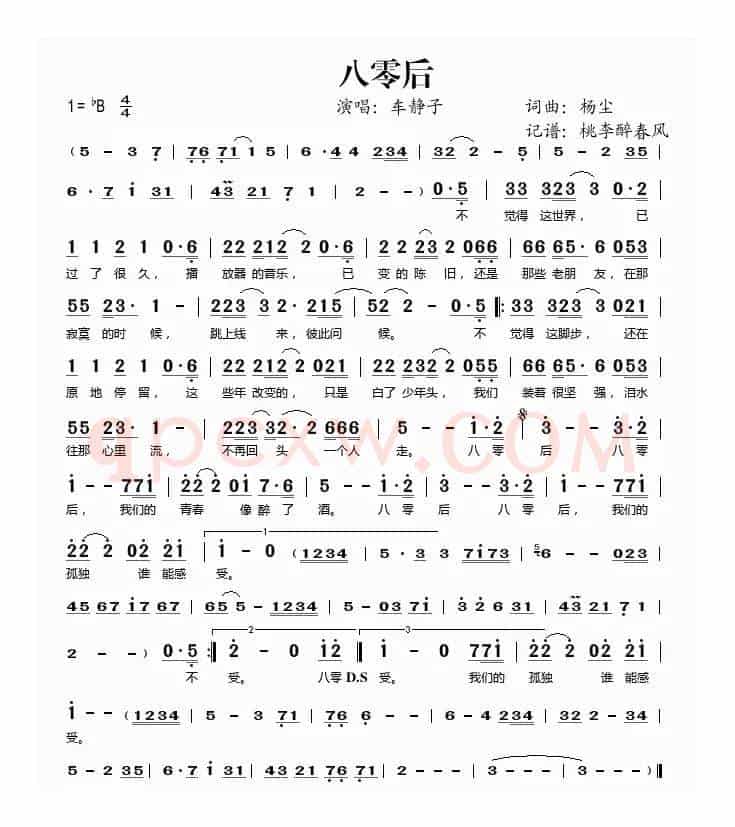 八零后
1=♭B 4/4 演唱：车静子 词曲：杨尘
记谱：桃李醉春风
(5 - 3 7 | 76 71 1 5 | 6·4 4 234 | 32 2 - 5 | 5 - 2 35 |
6·7 i 31 | 43 21 7 1 | 2 - - ) 0·5 | 33 323 3 0·2 |
不 觉得 这世界， 已
1 1 2 1 0·6 | 22 212 2 0·6 | 2 2 23 2 066 | 66 65·6 053 |
过 了 很 久， 播 放器 的音乐， 已 变 的 陈 旧，还是 那些 老朋 友，在那
55 23·1 - | 223 32·215 | 52 2 - 0·5 |: 33 323 3 021 |
寂寞 的时 候， 跳上线 来，彼此问 候。 不 觉得 这脚步， 还在
1 1 2 1 0·6 | 22 212 2 021 | 2 2 23 2 055 | 66 65·6 053 |
原 地 停 留， 这 些年 改变的， 只是 白了 少年头， 我们 装着 很坚 强，泪水
55 23·1 - | 223 32·2 666 | 5 - - i·2 | 3 - - 3·2 |
往那 心里 流， 不再回 头 一个人 走。 八零 后 八零
i - - 77i | 2 2 0i 7·6 | 5 - - i·2 | 3 - - 3·2 | i - - 77i |
后， 我们的 青春 像醉 了 酒。 八零 后 八零 后， 我们的
1
22 2 02 2i | i - 0 (1234 | 5·3 3 7i73 | 6 - - 023 |
孤独 谁 能感 受。
45 67 i7 67 | 65 5 - 1234 | 5 - 035 7i | 32 6 631 | 43 21 7 1 |
2 3
2 - - ) 0·5 :| 2 - 0 i2 | i - 0 77i | 22 2 02 2i |
不 受。 八零 D.S 受。 我们的 孤独 谁 能感
i - - (1234 | 5 - 3 71 | 76 6 - - | 6 - 4 234 | 32 2 - - |
受。
5 - 2 35 | 6·7 i 31 | 43 21 76 71 | 2 - - - | 3 - - - | 3 - - - )‖
qpcxw.COM